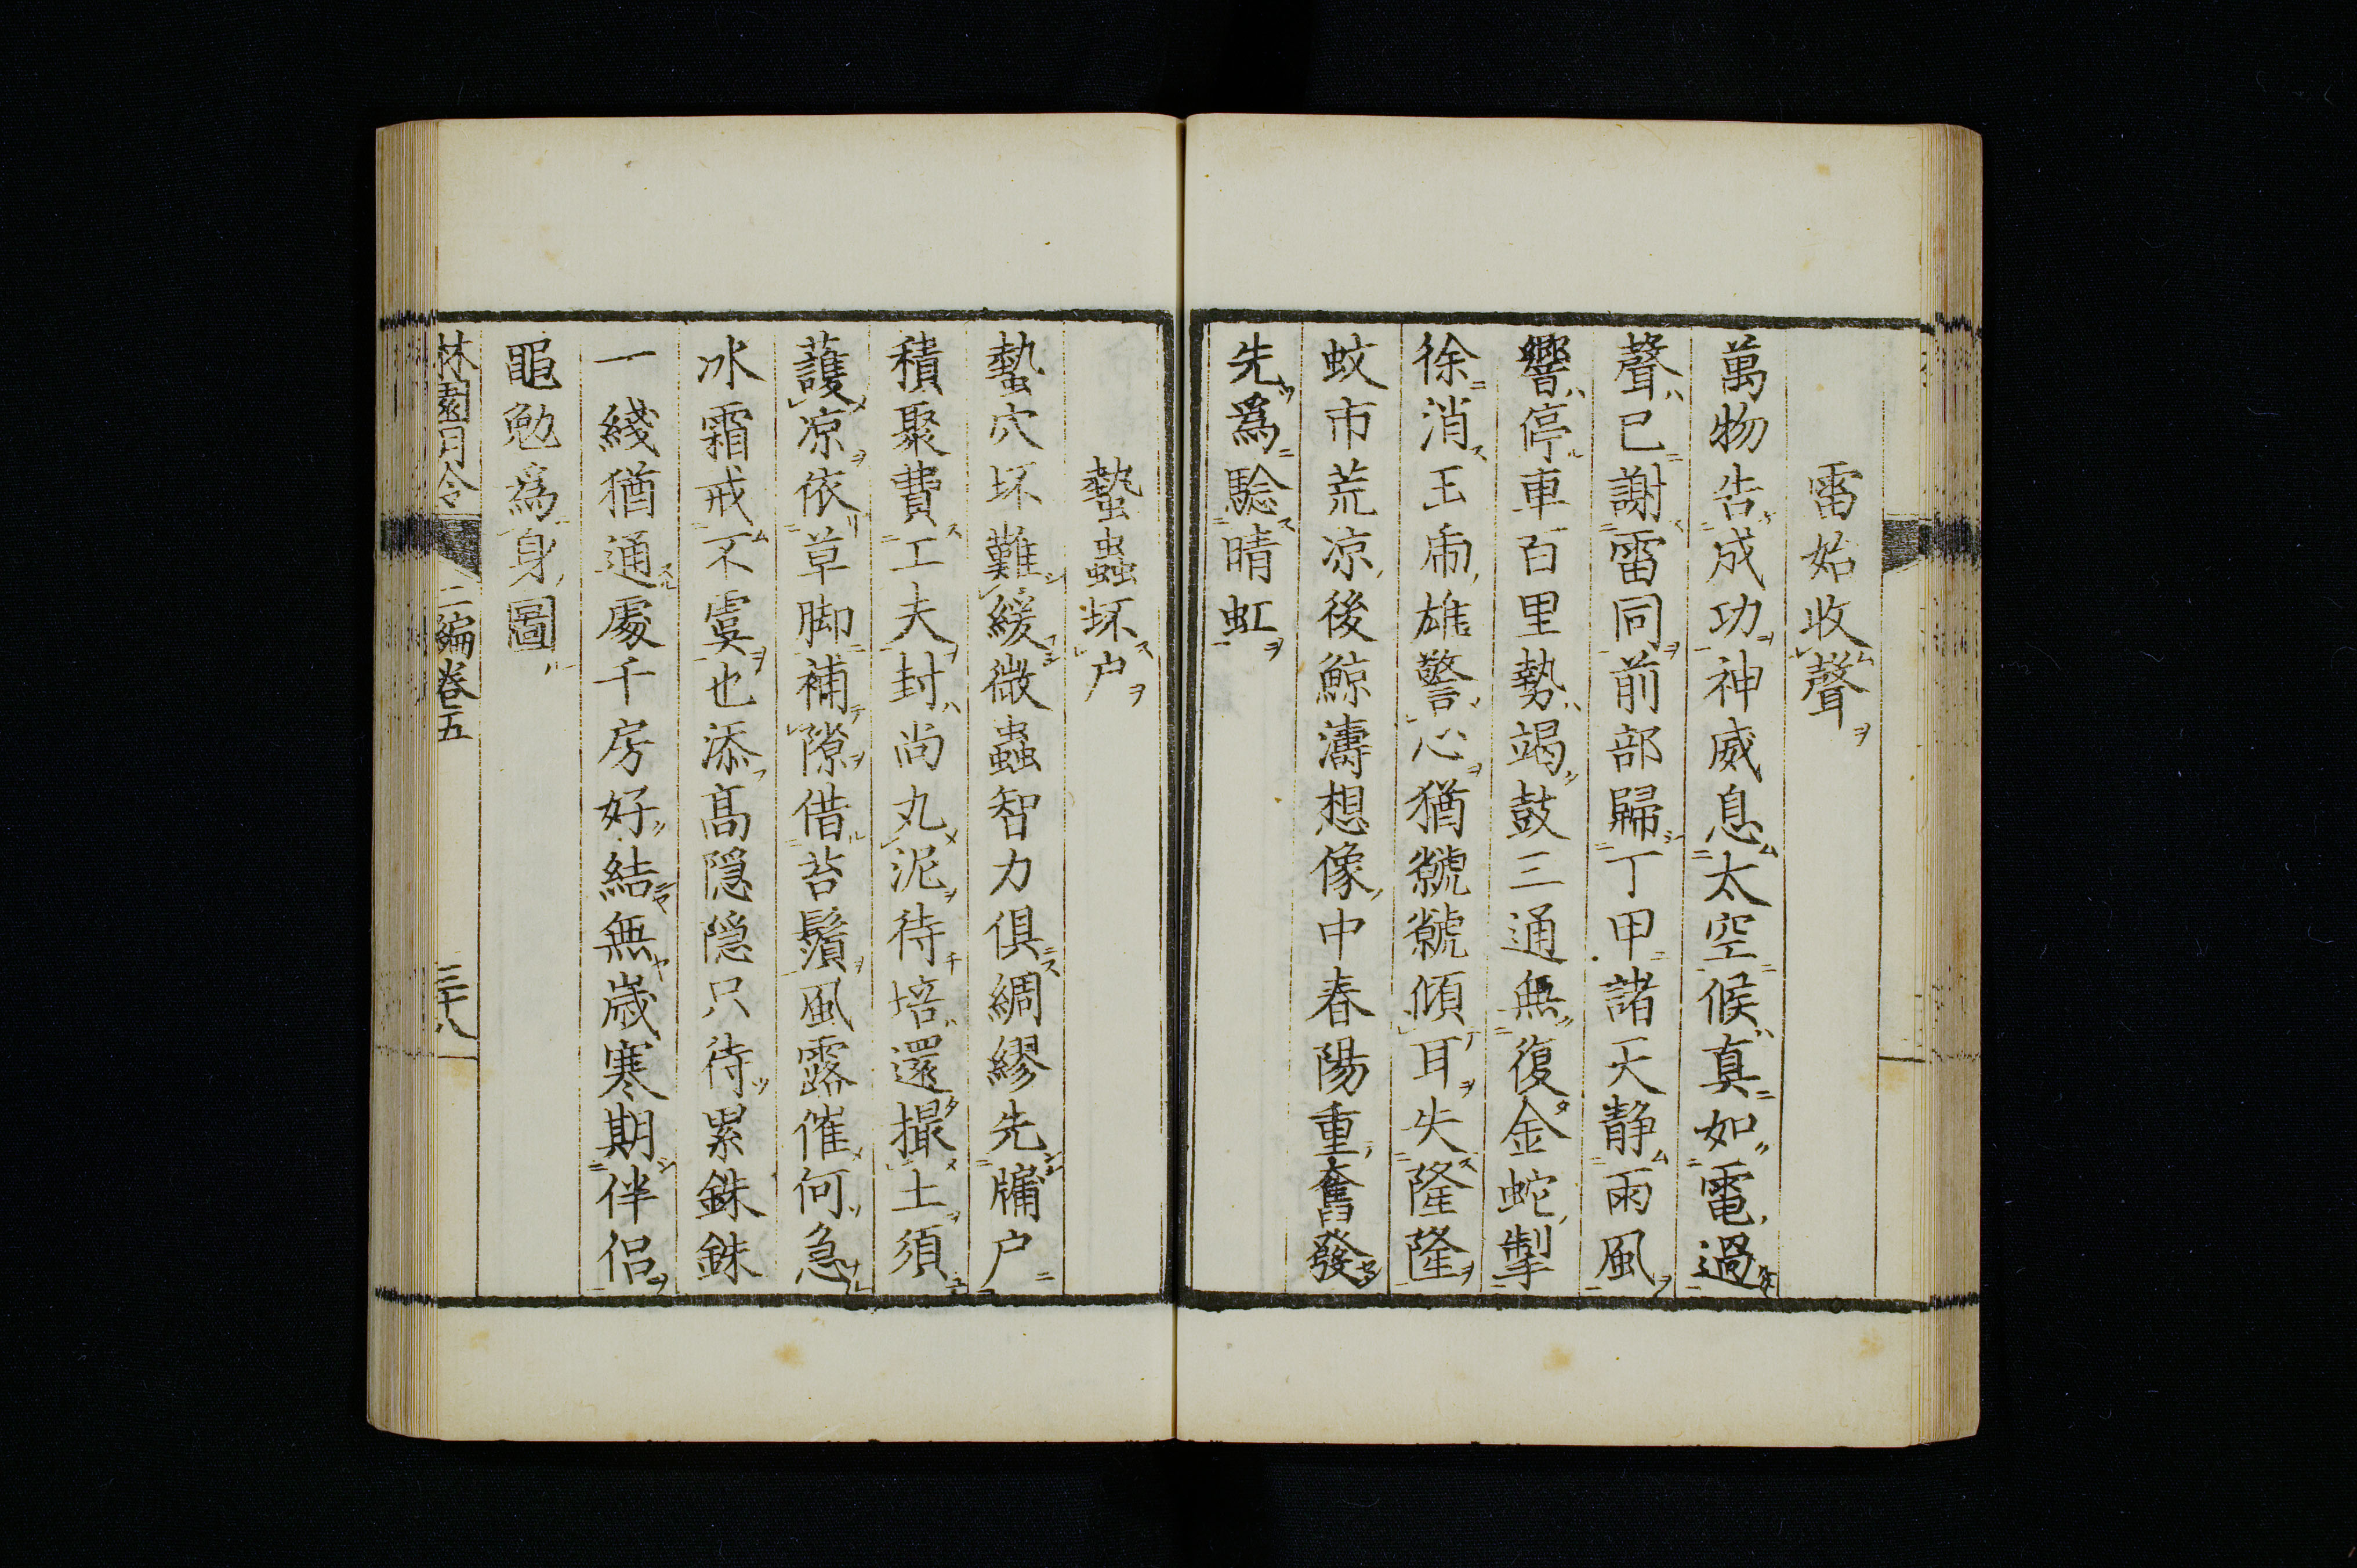 雷始收聲
萬物告成功神威息太空候真如電過
聲已謝雷同前部歸丁甲諸天静雨風
響停車百里勢竭鼓三通無復金蛇掣
徐消玉虎雄警心猶虩虩傾耳失隆隆
蚊市荒凉後鯨濤想像中春陽重奮發
先爲驗晴虹
蟄蟲坏户
蟄穴坏難緩微蟲智力俱綢繆先牖户
積聚費工夫封尚丸泥待培還撮土須
護凉依草脚補隙借苔鬚風露催何急
冰霜戒不虞也添高隱隱只待累銖銖
一綫猶通處千房好結無歳寒期伴侣
黽勉爲身圖
林園月令 二編卷五 三十八